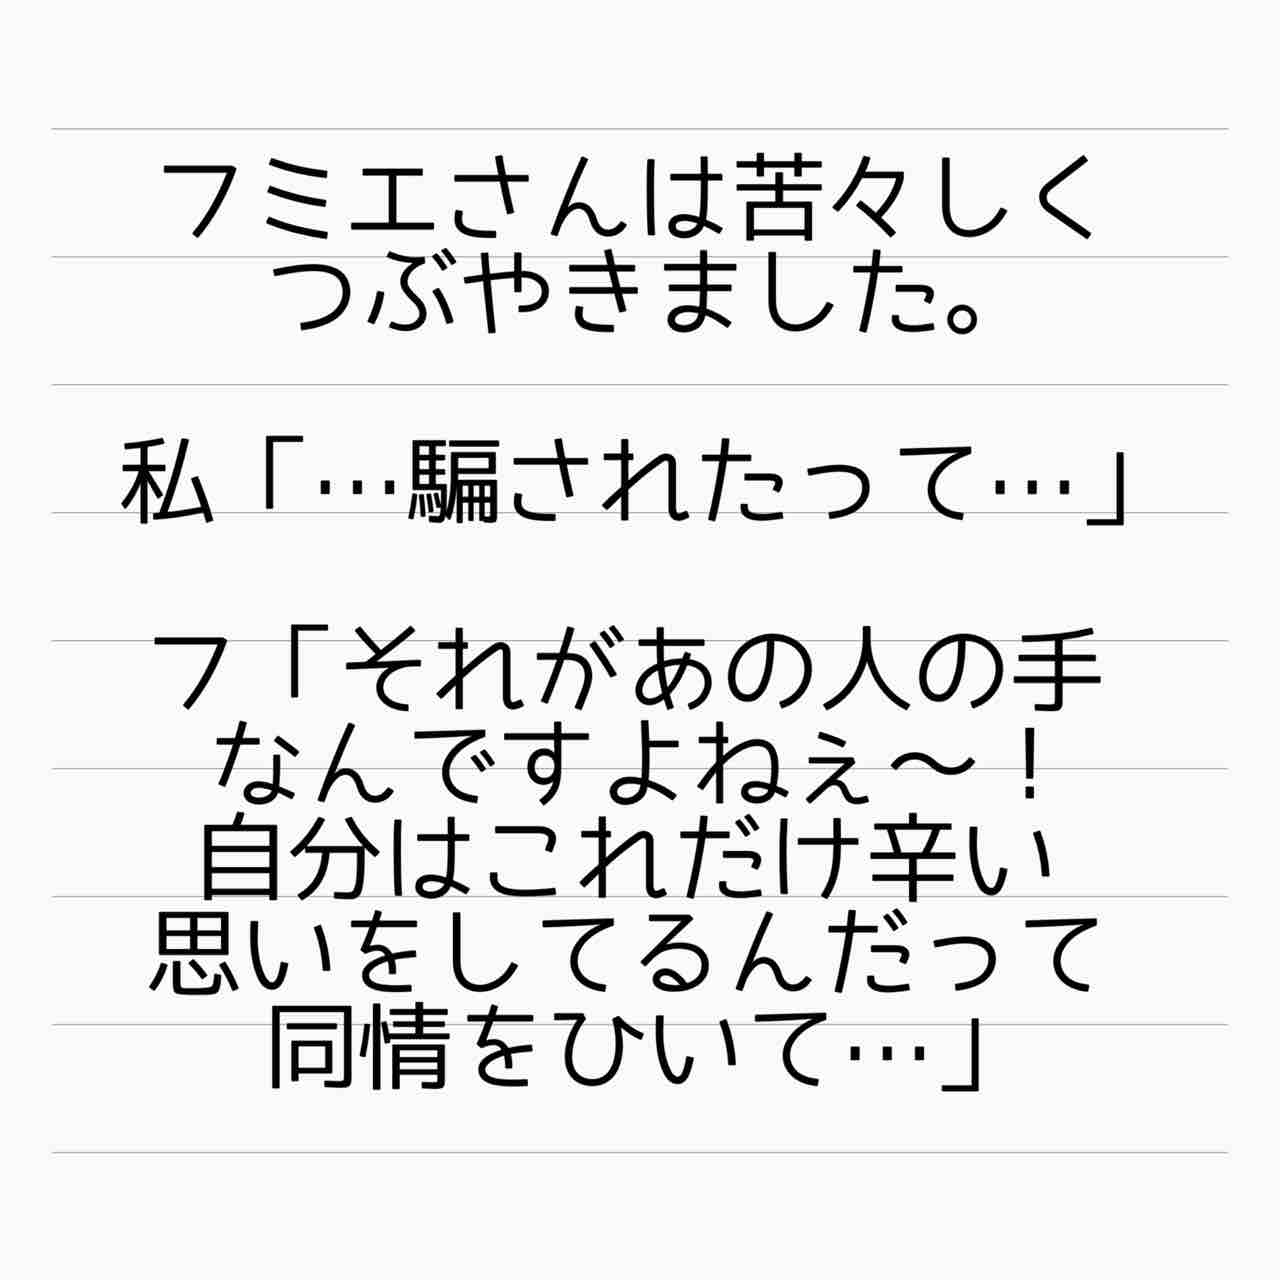 フミエさんは苦々しく
つぶやきました。
私「…騙されたって…」
フ「それがあの人の手
なんですよねぇ〜！
自分はこれだけ辛い
思いをしてるんだって
同情をひいて…」